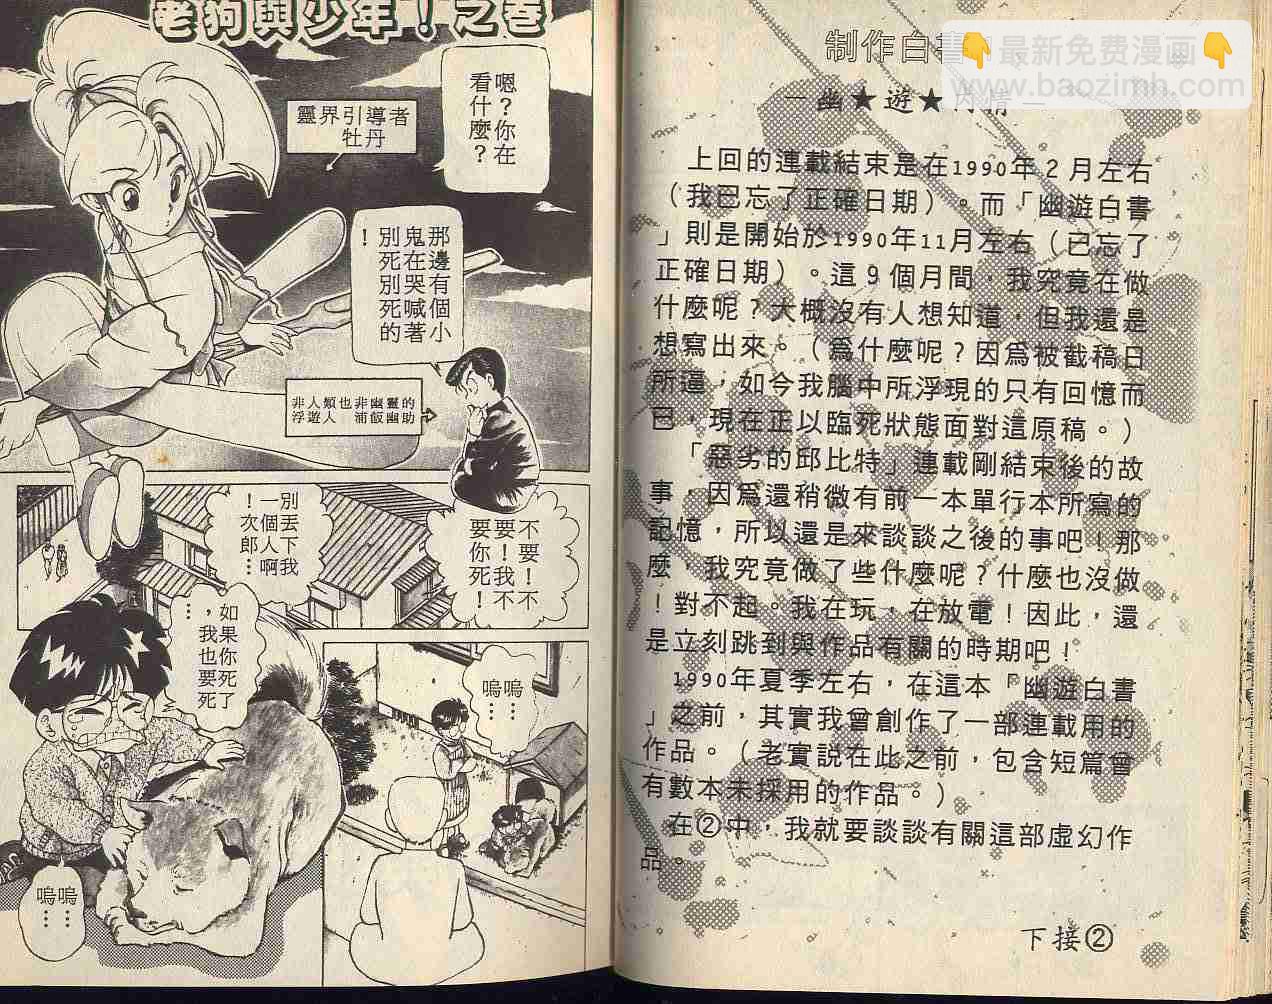 制作白書
👇最新免费漫画👇
www.baozimh.com
—幽★遊★內情—
上回的連載結束是在1990年2月左右
（我已忘了正確日期）。而「幽遊白書
」則是開始於1990年11月左右（已忘了
正確日期）。這9個月間，我究竟在做
什麼呢？大概沒有人想知道，但我還是
想寫出來。（爲什麼呢？因爲被截稿日
所逼，如今我腦中所浮現的只有回憶而
已，現在正以臨死狀態面對這原稿。）
「惡劣的邱比特」連載剛結束後的故
事，因爲還稍微有前一本單行本所寫的
記憶，所以還是來談談之後的事吧！那
麼，我究竟做了些什麼呢？什麼也沒做
！對不起。我在玩，在放電！因此，還
是立刻跳到與作品有關的時期吧！
1990年夏季左右，在這本「幽遊白書
」之前，其實我曾創作了一部連載用的
作品。（老實說在此之前，包含短篇曾
有數本未採用的作品。）
在②中，我就要談談有關這部虛幻作
品。
下接②
老狗與少年！之卷
嗯？你在
看什麼？
靈界引導者
牡丹
那邊有個小
鬼在哭喊著
別死別死的
！
非人類也非幽靈的
浮遊人 浦飯幽助
不要！不
要！我不
要你死！
別丟下我
一個人啊
！次郎…
如果你死了
，我也要死
…
嗚嗚
……
嗚嗚
……